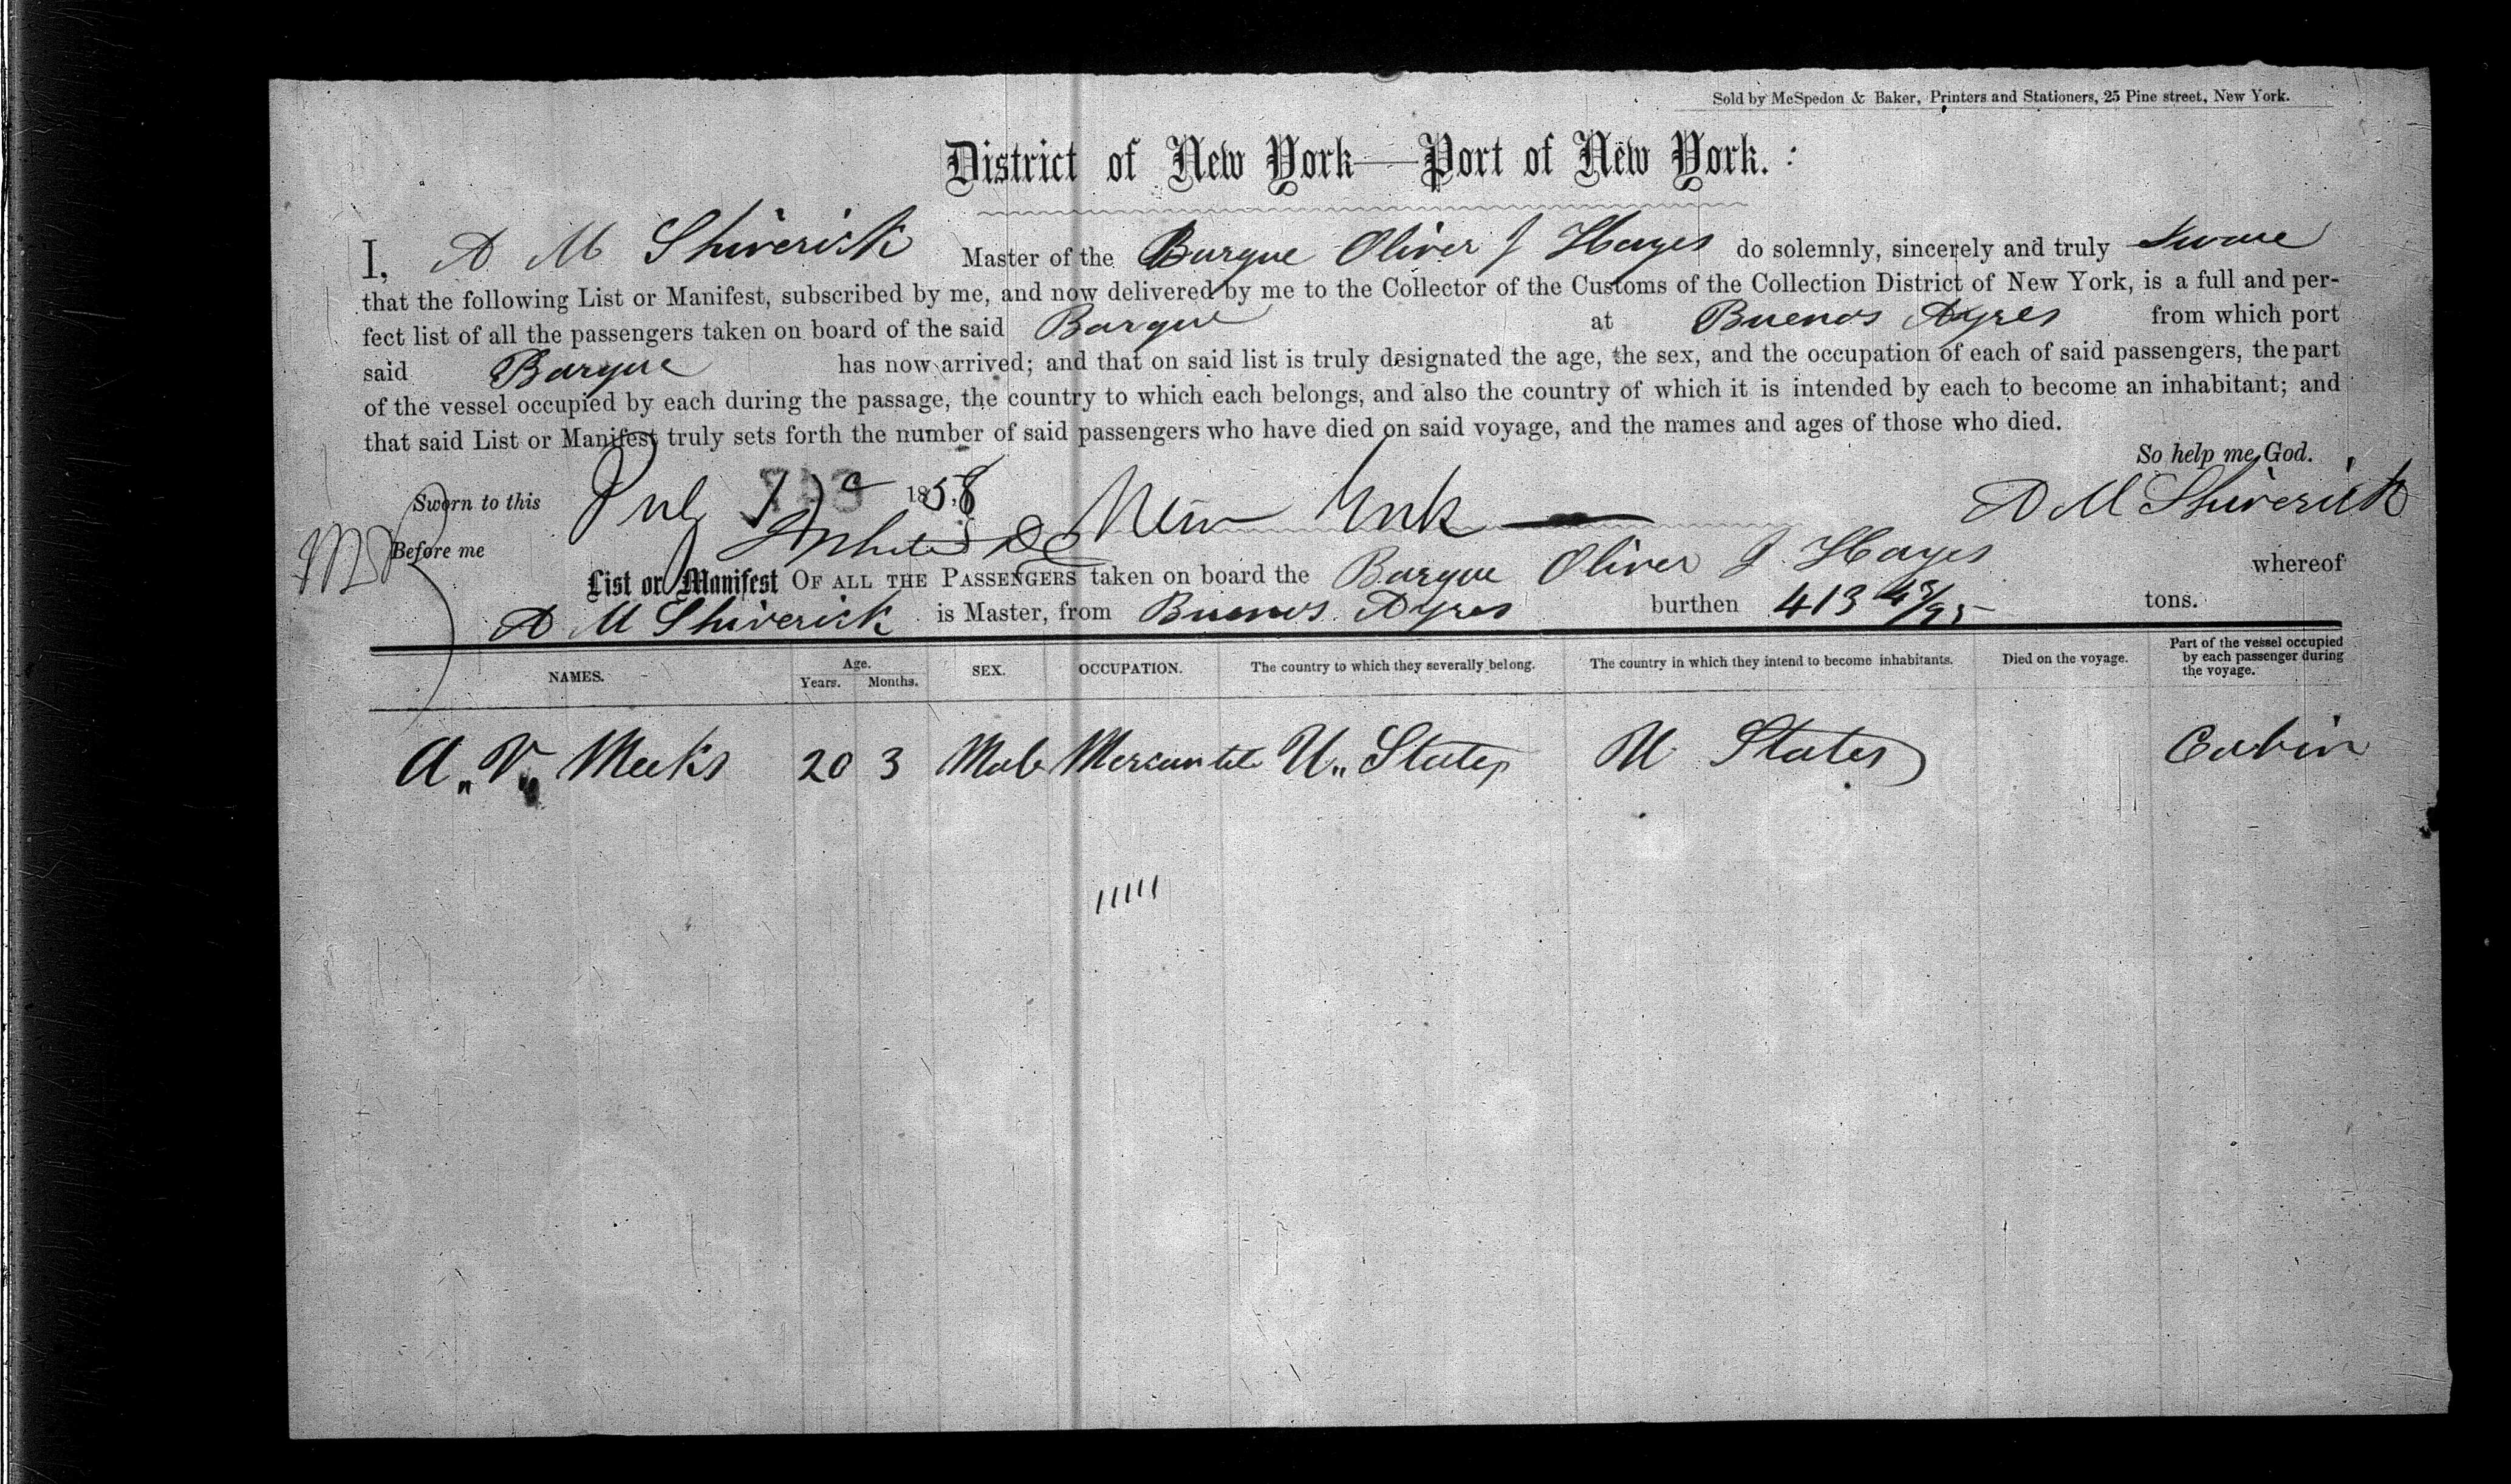 Sold by McSpedon & Baker, Printers and Stationers, 25 Pine street, New York.
District of New York—Port of New York.
I, A M Shiverick Master of the Barque Oliver J Hayes do solemnly, sincerely and truly Swear
that the following List or Manifest, subscribed by me, and now delivered by me to the Collector of the Customs of the Collection District of New York, is a full and per-
fect list of all the passengers taken on board of the said Barque at Buenos Ayres from which port
said Barque has now arrived; and that on said list is truly designated the age, the sex, and the occupation of each of said passengers, the part
of the vessel occupied by each during the passage, the country to which each belongs, and also the country of which it is intended by each to become an inhabitant; and
that said List or Manifest truly sets forth the number of said passengers who have died on said voyage, and the names and ages of those who died.
So help me God.
Sworn to this 1858 New York A M Shiverick
Before me
List or Manifest OF ALL THE PASSENGERS taken on board the Barque Oliver J. Hayes whereof
A M Shiverick is Master, from Buenos Ayres burthen 413 43/95 tons.
NAMES. Age. Years. Months. SEX. OCCUPATION. The country to which they severally belong. The country in which they intend to become inhabitants. Died on the voyage. Part of the vessel occupied by each passenger during the voyage.
A. V. Meeks 20 3 Male Mercantile U. States U States Cabin